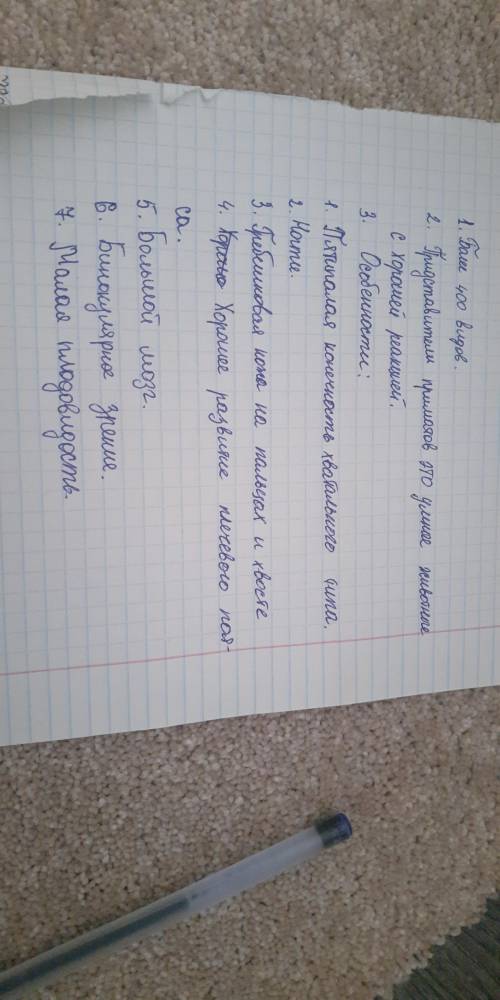 1. Бале 400 видов.
2. Представители приматов это умное животные
с хорошей реакцией.
3. Особенности:
1. Пятипалая конечность хватального типа.
2. Ногти.
3. Гребешковая кожа на пальцах и хвосте
4. Хорошее развитие плечевого поя-
са.
5. Большой мозг.
6. Бинокулярное зрение.
7. Малая плодовидость.